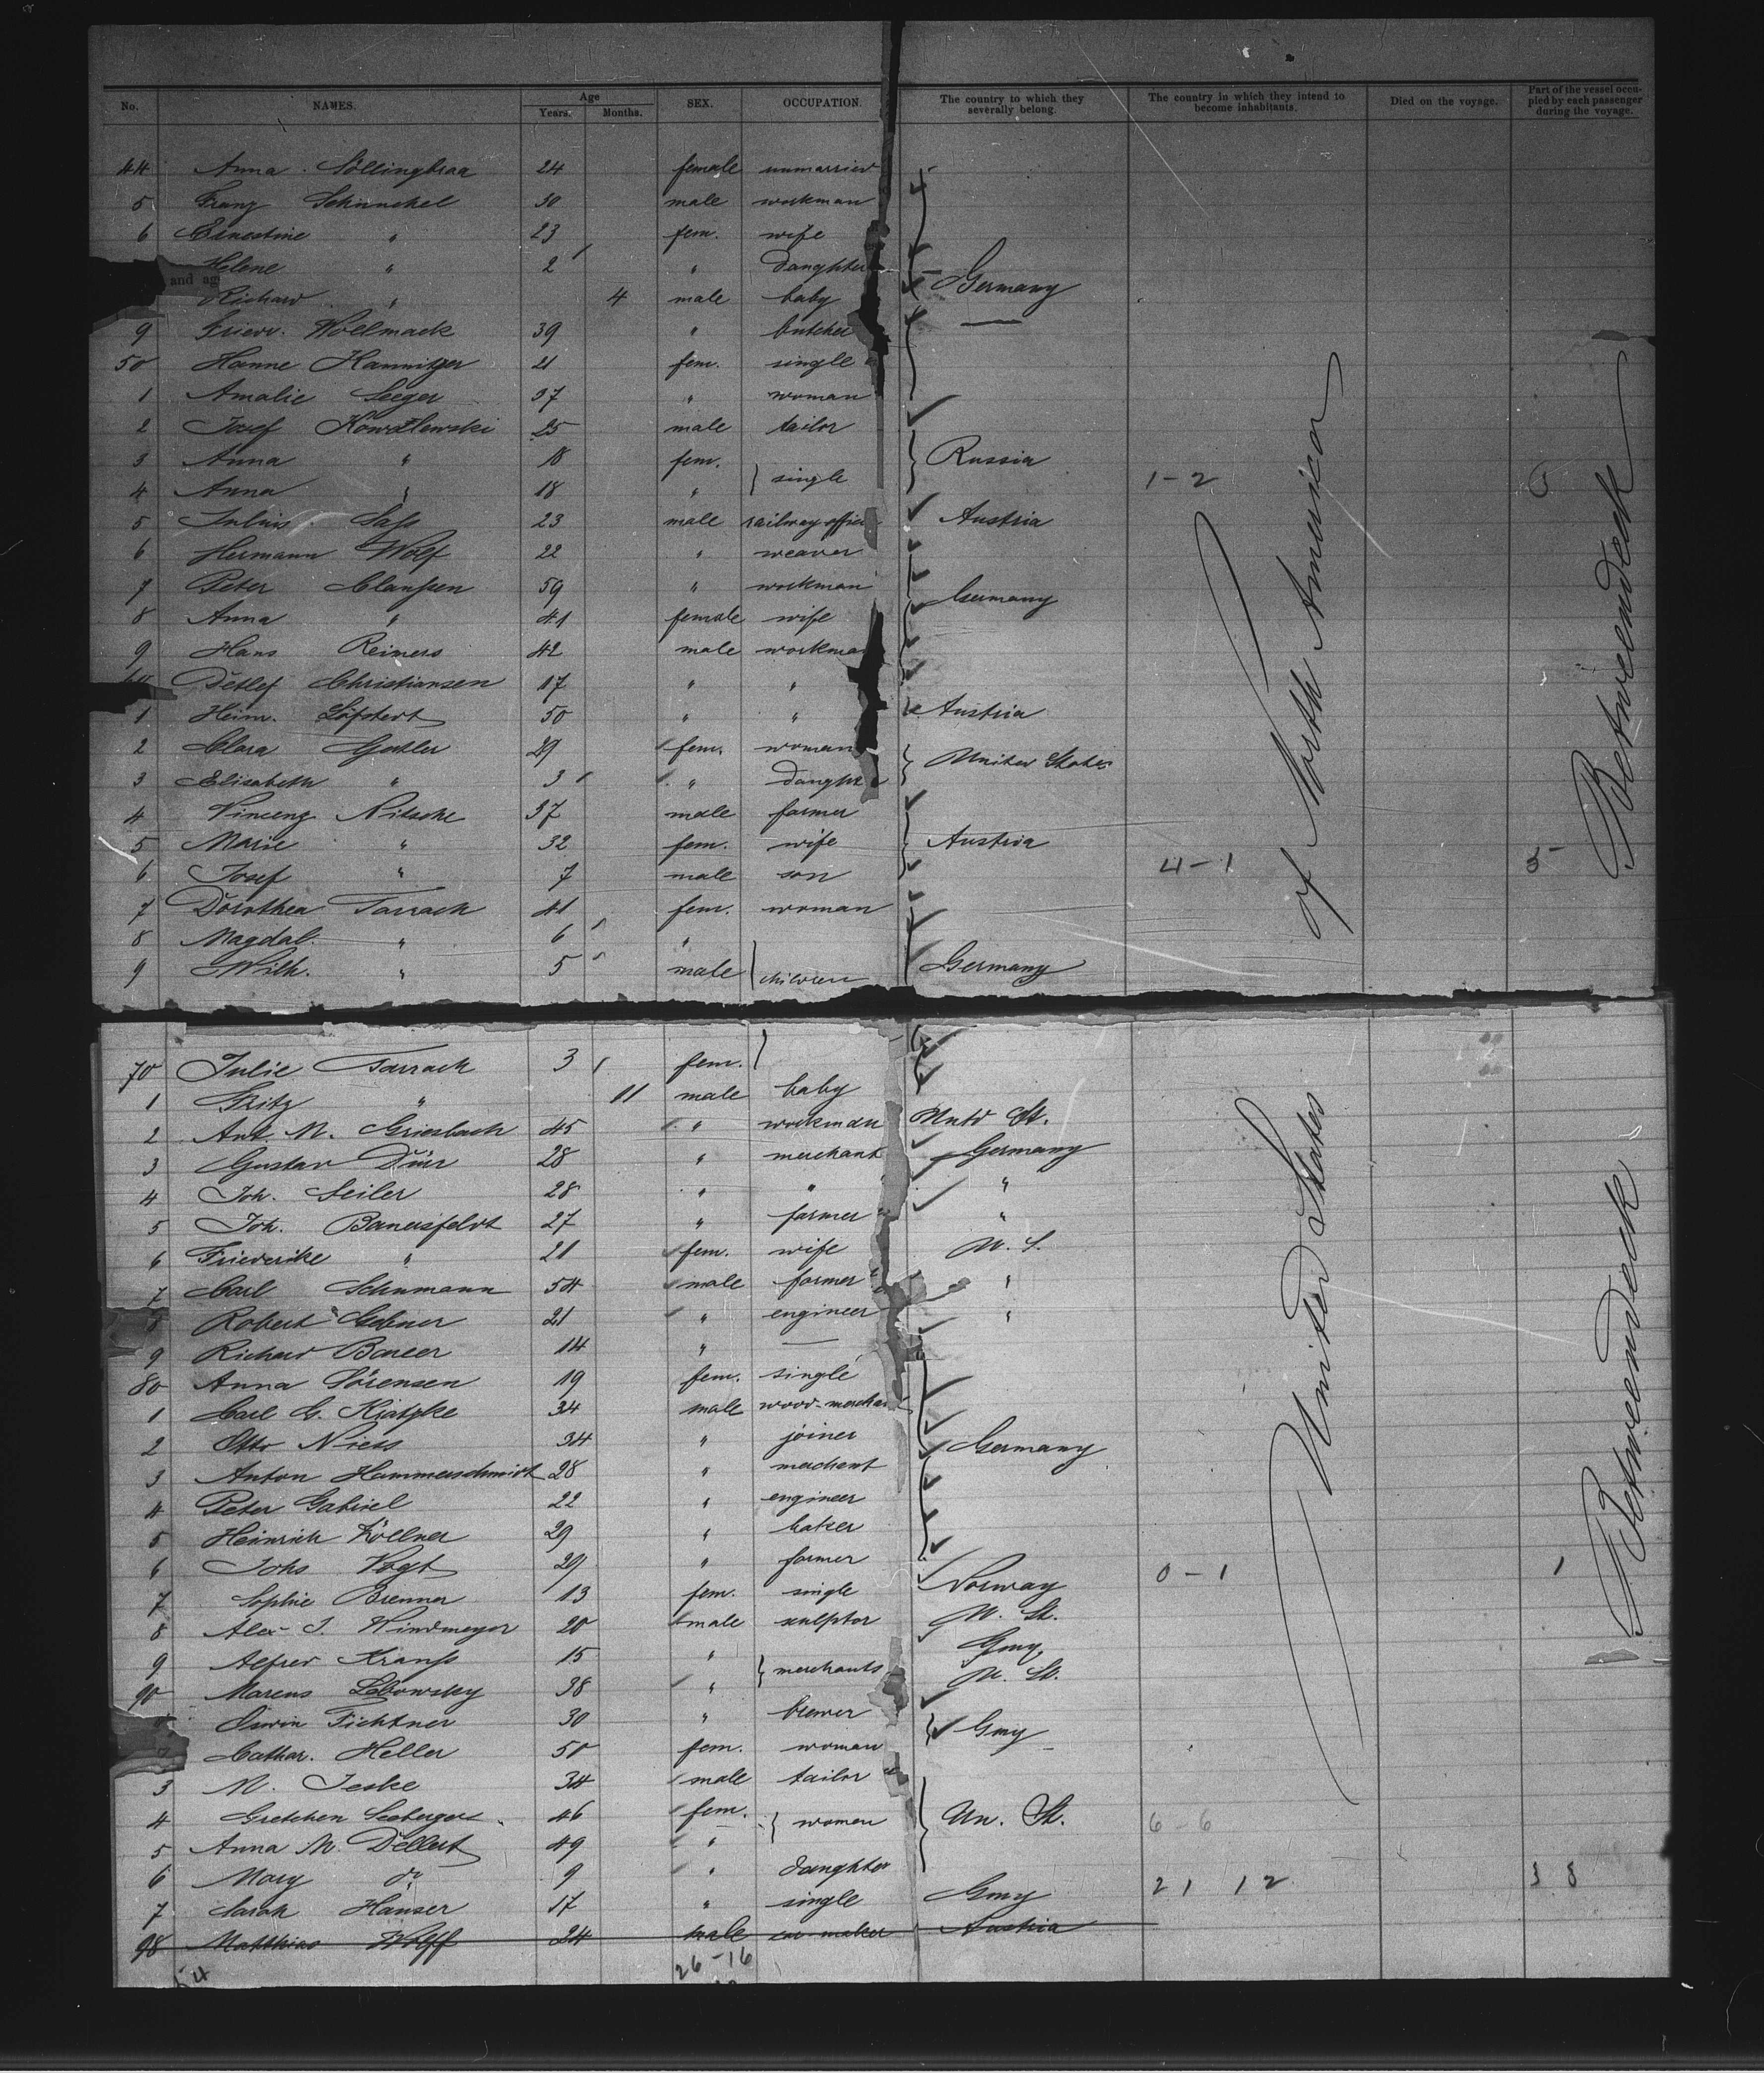 No. NAMES. Age Years. Months. SEX. OCCUPATION. The country to which they severally belong. The country in which they intend to become inhabitants. Died on the voyage. Part of the vessel occupied by each passenger during the voyage.
44 Anna 24 female unmarried
5 Franz Schunckel 30 male workman
6 Ernestine " 23 fem. wife
and ag Helene " 2 " daughter
Richard " 4 male baby Germany
9 Friedr. Wollmack 39 " butcher
50 Hanne Kannitzer 21 fem. single
1 Amalie Seeger 37 " woman
2 Josef Kowalewski 25 male tailor
3 Anna " 18 fem. Russia
4 Anna " 18 " single 1-2
5 Julius Sass 23 male railway offic Austria
6 Hermann Wolf 22 " weaver
7 Peter Claussen 59 " workman Germany
8 Anna " 41 female wife
9 Hans Reimers 42 male workman
Detlef Christiansen 17 " "
1 Heinr. 50 " " Austria
2 Clara 29 fem. woman United States
3 Elisabeth " 3 " daughter
4 Vincenz Nitsche 37 male farmer
5 Marie " 32 fem. wife Austria
6 Josef " 7 male son 4-1 5
7 Dorothea Tarrach 41 fem. woman
8 Magdal. " 6 "
9 Wilh. " 5 male children Germany
of North America
Betweendeck
70 Julie Tarrach 3 fem.
1 Fritz " 11 male baby
2 Ant. M. Griesbach 45 " workman Untd St.
3 Gustav Dürr 28 " merchant Germany
4 Joh. Seiler 28 " " "
5 Joh. Bauersfeldt 27 " farmer "
6 Friederike " 21 fem. wife U. S.
7 Carl Schumann 54 male farmer "
8 Robert 21 " engineer "
9 Richard 14 " —
80 Anna Sörensen 19 fem. single
1 Carl G. Kratzke 34 male wood-merchant
2 Otto Niess 34 " joiner Germany
3 Anton Hammerschmidt 28 " merchant
4 Peter Gabriel 22 " engineer
5 Heinrich Köllner 29 " baker
6 Johs Vogt 29 " farmer
7 Sophie Brenner 13 fem. single Norway 0-1 1
8 Alex J. Windmeyer 20 male sculptor U. St.
9 Alfred Krauss 15 " merchants Gmy
90 Marcus Lebowsky 38 " U. St.
Erwin Fichtner 30 " brewer Gmy
Cathar. Heller 50 fem. woman
3 M. Jeske 34 male tailor
4 Gretchen 46 fem. women Un. St. 6-6
5 Anna M. Dellert 49 "
6 Mary do 9 " daughter
7 Sarah Hauser 17 " single Gmy 21 12 38
98 Matthias Wolff 24 male Austria
54 26-16
United States
Betweendeck